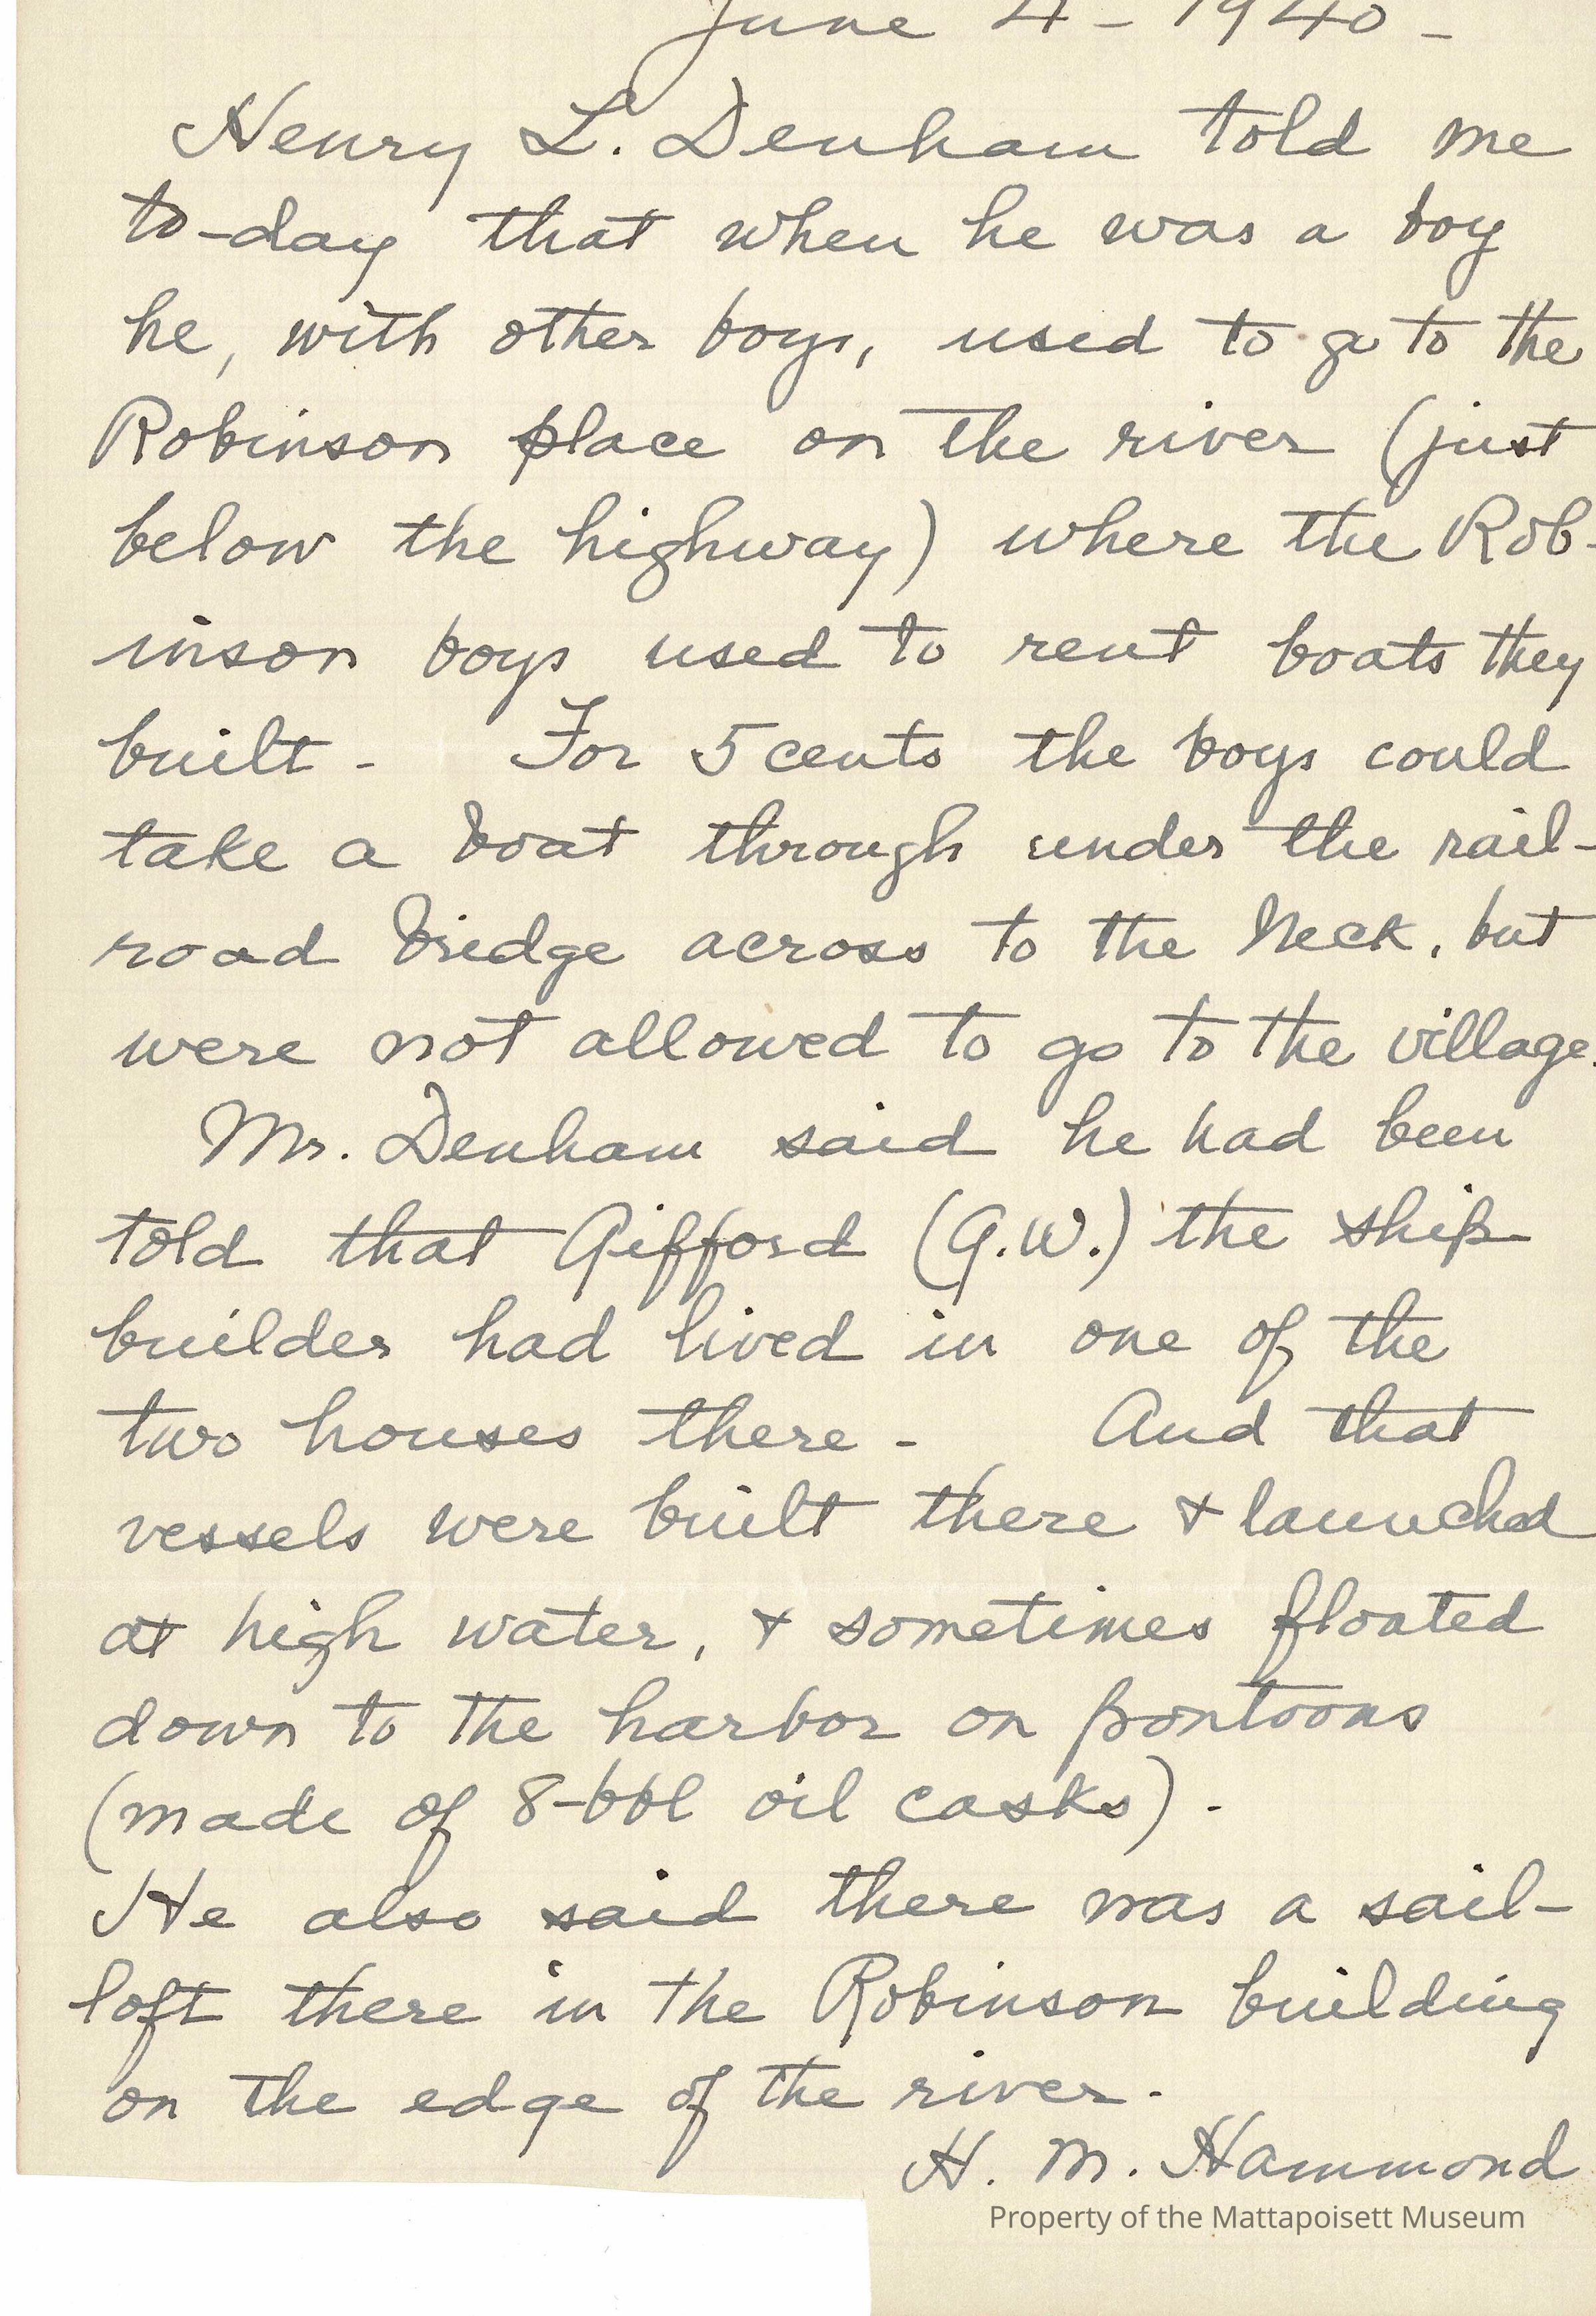 June 4 - 1940 -
Henry L. Denham told me
to-day that when he was a boy
he, with other boys, used to go to the
Robinson place on the river (just
below the highway) where the Rob-
inson boys used to rent boats they
built - For 5 cents the boys could
take a boat through under the rail-
road bridge across to the Neck, but
were not allowed to go to the village.
Mr. Denham said he had been
told that Gifford (G.W.) the ship
builder had lived in one of the
two houses there - And that
vessels were built there & launched
at high water, & sometimes floated
down to the harbor on pontoons
(made of 8-bbl oil casks).
He also said there was a sail-
loft there in the Robinson building
on the edge of the river.
H. M. Hammond
Property of the Mattapoisett Museum